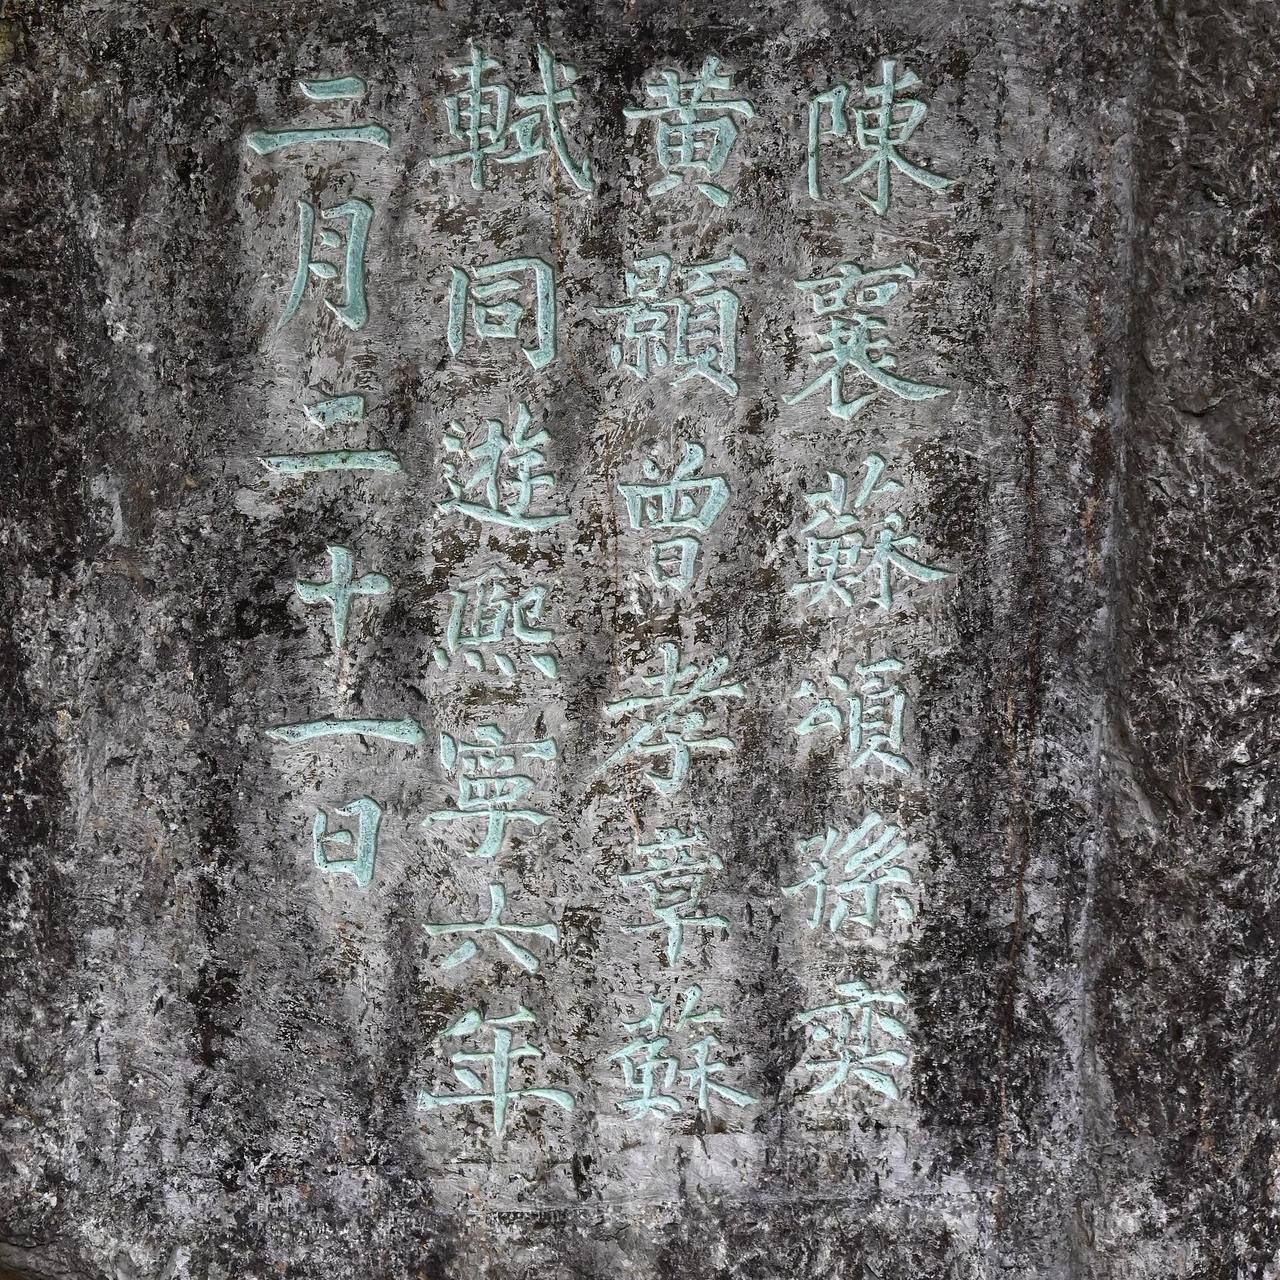 陳襄蘇頌孫奕
黄顥曾孝章蘇
軾同遊熙寧六年
二月二十一日